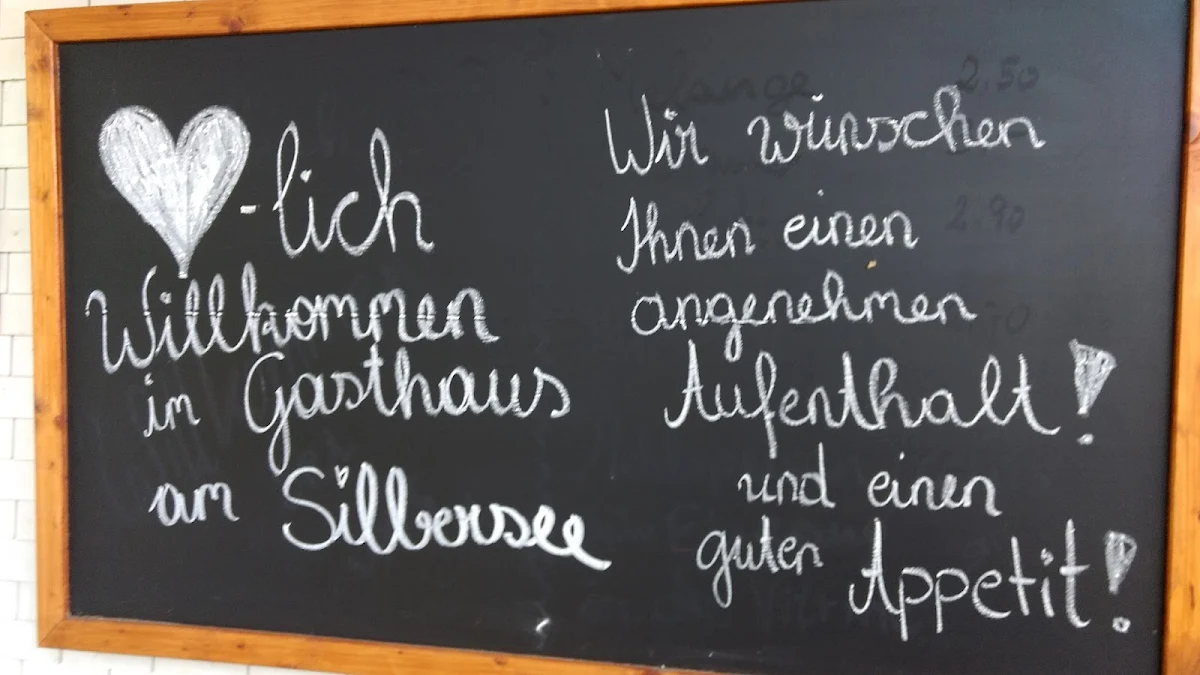 -lich
Willkommen
in Gasthaus
am Silbersee
Wir wünschen
Ihnen einen
angenehmen
Aufenthalt!
und einen
guten Appetit!
2.50
2.90